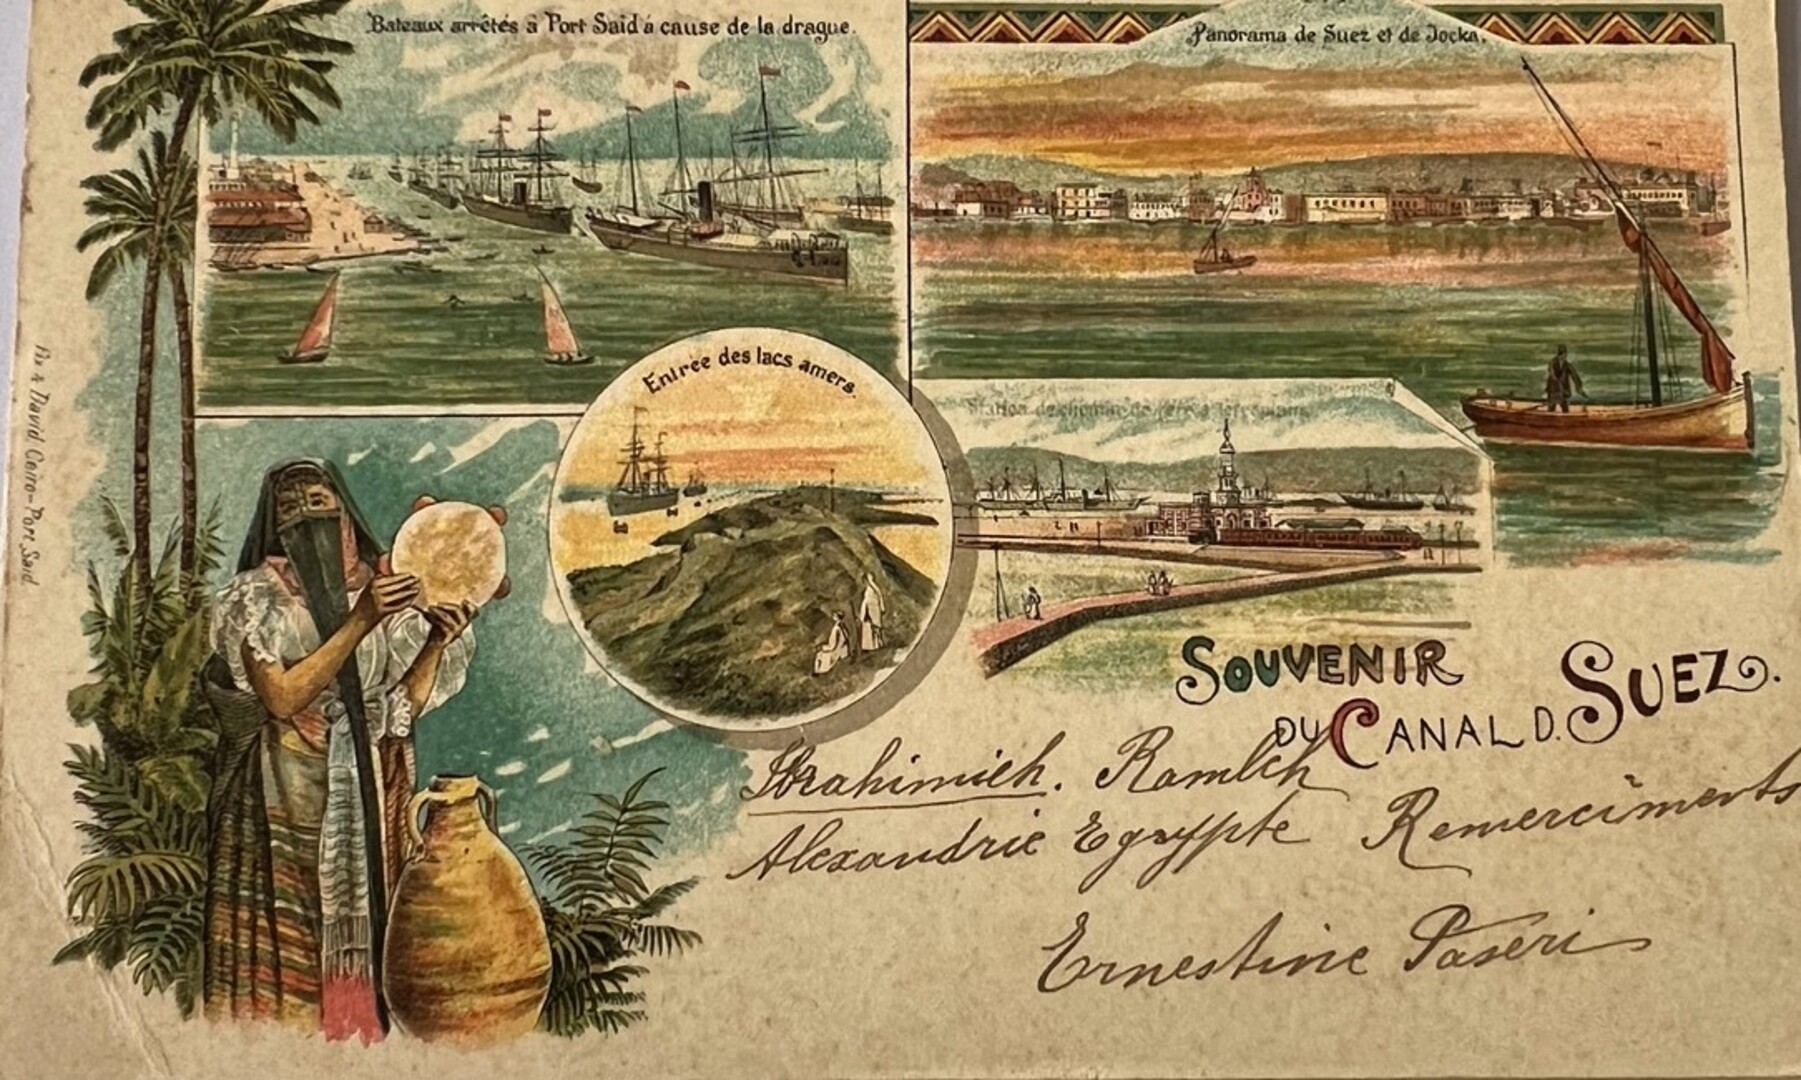 Bateaux arrêtés à Port Said à cause de la drague.
Panorama de Suez et de Jocka.
Entrée des lacs amers.
Station de chemin de fer à
SOUVENIR
DU CANAL D. SUEZ.
Ibrahimieh. Ramleh
Alexandrie Egypte Remerciments
Ernestine
David, Cairo-Port Said.